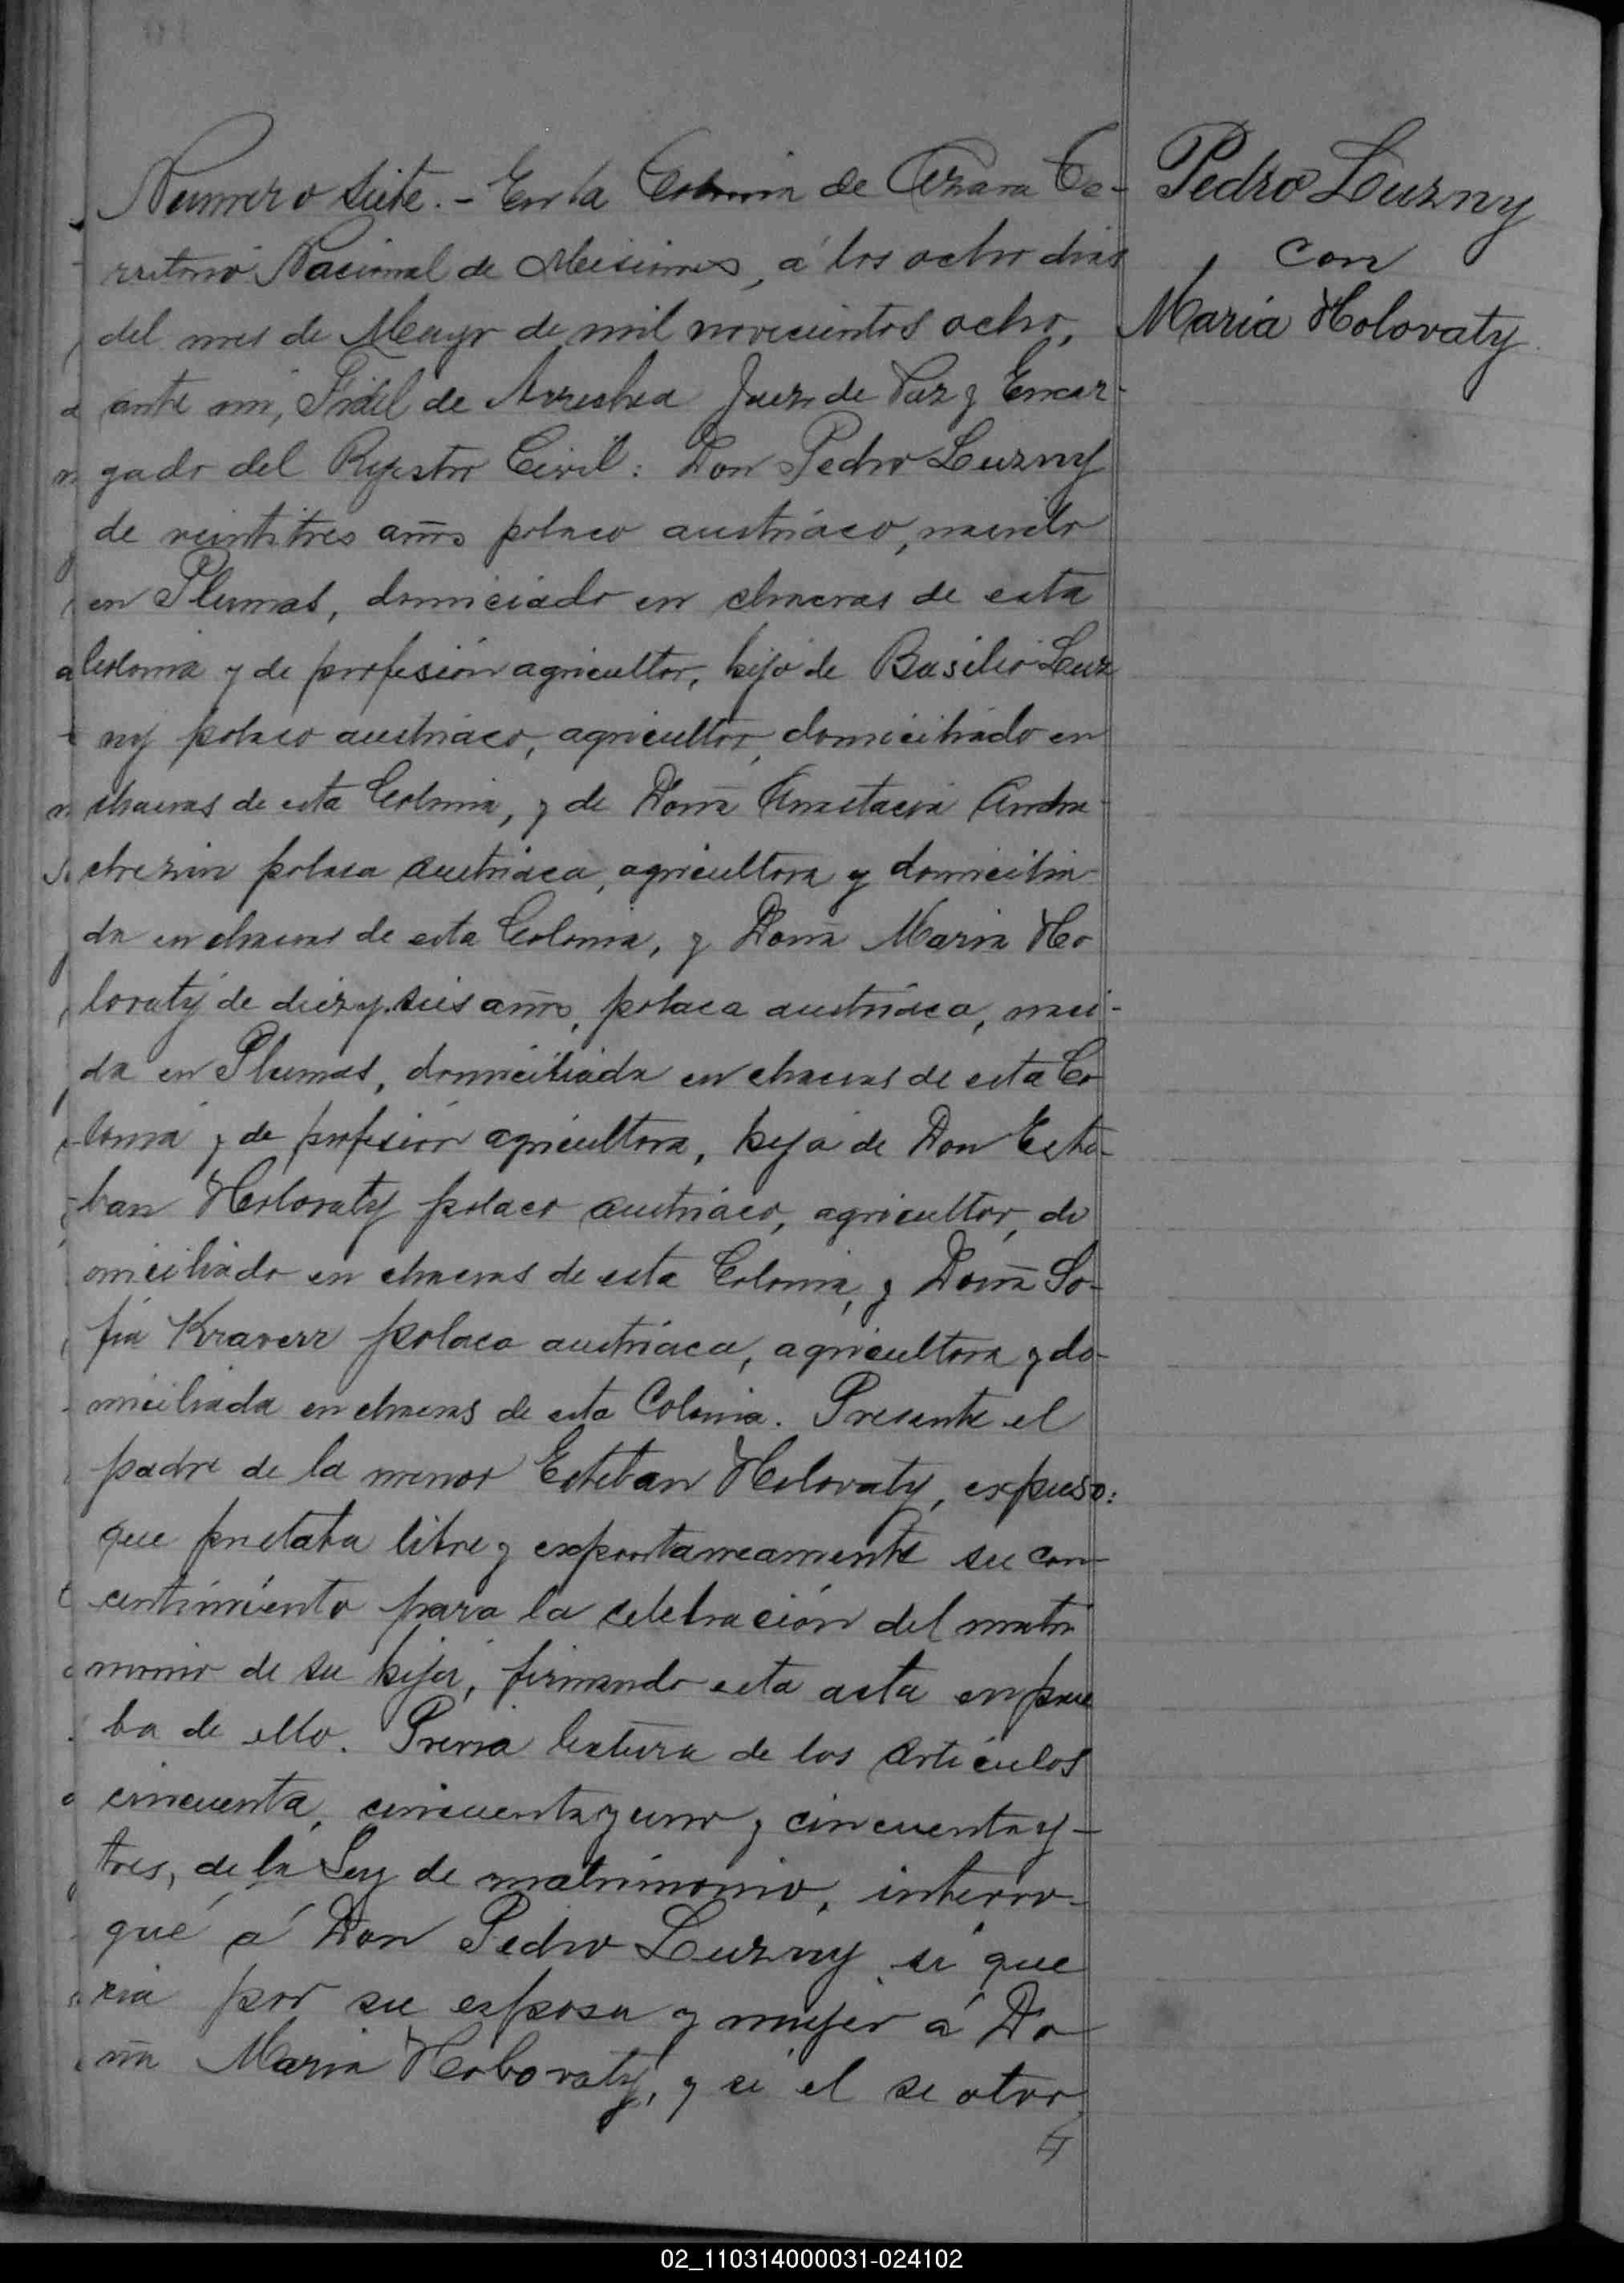 Numero siete. - En la Colonia de Azara Te-
rritorio Nacional de Misiones, á los ocho dias
del mes de Mayo de mil novecientos ocho,
ante mi, Fidel de Arrechea Juez de Paz y Encar-
gado del Registro Civil: Don Pedro Luzny
de veintitres años polaco austriaco, nacido
en Plumas, domiciado en chacras de esta
Colonia y de profesión agricultor, hijo de Basilio Luz
ny polaco austriaco, agricultor, domiciliado en
chacras de esta Colonia, y de Doña Anastacia Andru-
chezin polaca austriaca, agricultora y domicilia-
da en chacras de esta Colonia, y Doña Maria Ho
lovaty de diez y seis años, polaca austriaca, naci-
da en Plumas, domiciliada en chacras de esta Co
lonia y de profesión agricultora, hija de Don Este-
ban Holovaty polaco austriaco, agricultor, do
miciliado en chacras de esta Colonia, y Doña So-
fia Kraverz polaca austriaca, agricultora y do-
miciliada en chacras de esta Colonia. Presente el
padre de la menor Esteban Holovaty, expuso:
que prestaba libre y expontaneamente su con-
centimiento para la celebración del matri
monio de su hija, firmando esta acta en prue
ba de ello. Previa lectura de los articulos
cincuenta, cincuenta y uno y cincuenta y-
tres, de la Ley de matrimonio, interro-
gué á Don Pedro Luzny si que
ria por su esposa y mujer á Do-
ña Maria Holovaty, y si el se otor
Pedro Luzny
con
Maria Holovaty
02_110314000031-024102